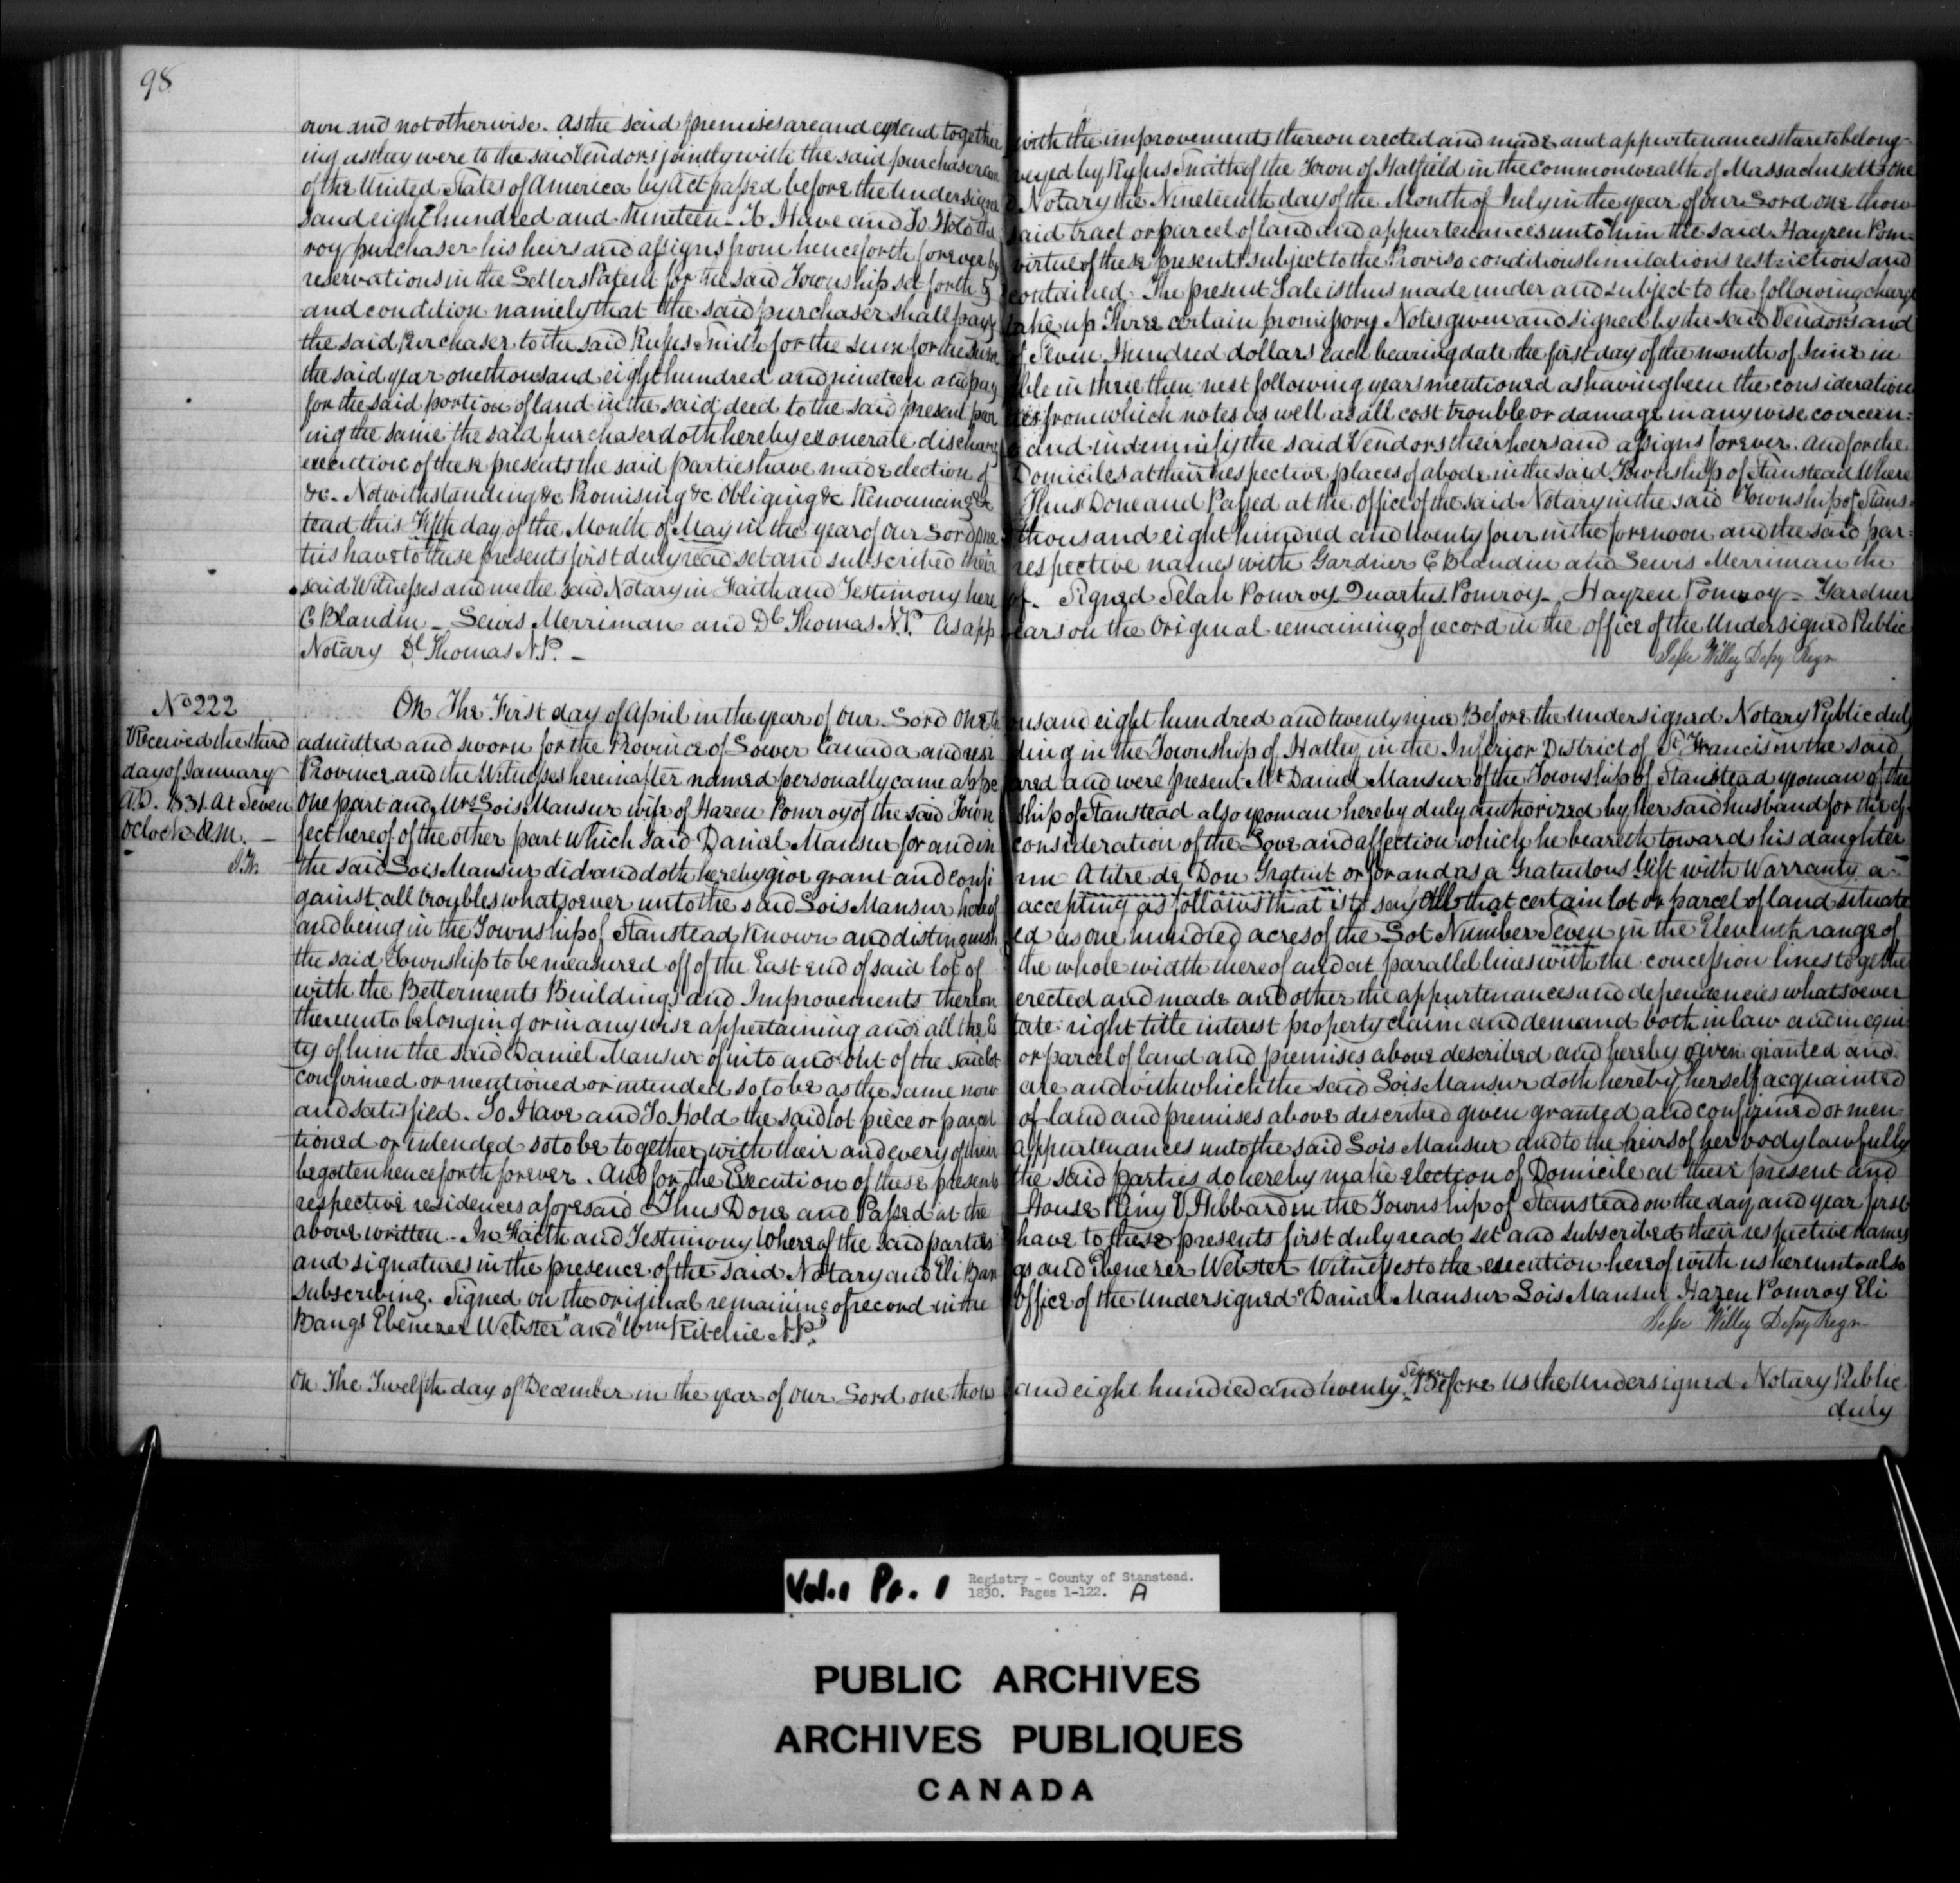 98
own and not otherwise. As the said premises are and extend together with the improvements thereon erected and made and appurtenances thereto belong=
ing as they were to the said Vendors jointly with the said purchaser con veyed by Rufus Smith of the Town of Hatfield in the Commonwealth of Massachusetts one
of the United States of America by Act passed before the Undersigne d Notary the Nineteenth day of the Month of July in the year of our Lord one thou
sand eight hundred and nineteen - To Have and To Hold the said tract or parcel of land and appurtenances unto him the said Hayzen Pom=
roy purchaser his heirs and assigns from henceforth forever by virtue of these presents subject to the Proviso conditions limitations restrictions and
reservations in the Letters Patent for the said Township set forth & contained. The present Sale is thus made under and subject to the following charge
and condition namely that the said purchaser shall pay & take up Three certain promissory Notes given and signed by the said Vendors and
the said Purchaser to the said Rufus Smith for the sum for the sum of Seven Hundred dollars each bearing date the first day of the month of June in
the said year one thousand eight hundred and nineteen and pay able in three then next following years mentioned as having been the consideration
for the said portion of land in the said deed to the said present par ties from which notes as well as all cost trouble or damage in any wise concern=
ing the same the said purchaser doth hereby exonerate discharg e and indemnify the said Vendors their heirs and assigns forever. And for the
execution of these presents the said parties have made election of Domiciles at their respective places of abode in the said Township of Stanstead Where
&c - Notwithstanding &c Promising &c Obliging &c Renouncing &c Thus Done and Passed at the office of the said Notary in the said Township of Stans=
tead this Fifth day of the Month of May in the year of our Lord one thousand eight hundred and twenty four in the forenoon and the said par=
ties have to these presents first duly read set and subscribed their respective names with Gardner C Blandin and Lewis Merriman the
said Witnesses and me the said Notary in Faith and Testimony here of. Signed Selah Pomroy Quartus Pomroy - Hayzen Pomroy - Gardner
C Blandin - Lewis Merriman and Dl Thomas N.P. As app ears on the Original remaining of record in the office of the Undersigned Public
Notary Dl Thomas N.P. -
Jesse Willey Depy Regr
No 222
Received the third
day of January
A.D. 1831. At Seven
oclock A.M. -
J.W.
On The First day of April in the year of our Lord one th ousand eight hundred and twenty nine Before the Undersigned Notary Public duly
admitted and sworn for the Province of Lower Canada and resi ding in the Township of Hatley in the Inferior District of St Francis in the said
Province and the Witnesses hereinafter named personally came appe ared and were present Mr Daniel Mansur of the Township of Stanstead yeoman of the
One part and Mrs Lois Mansur wife of Hazen Pomroy of the said Town ship of Stanstead also yeoman hereby duly authorized by her said husband for the ef-
fect hereof of the other part Which said Daniel Mansur for and in consideration of the Love and affection which he beareth towards his daughter
the said Lois Mansur did and doth hereby give grant and confi rm A titre de Don Gratuit or for and as a Gratuitous Gift with Warranty a-
gainst all troubles whatsoever unto the said Lois Mansur hereof accepting as follows that is to say All that certain lot or parcel of land situate
and being in the Township of Stanstead Known and distinguish ed as one hundred acres of the Lot Number Seven in the Eleventh range of
the said Township to be measured off of the East end of said lot of the whole width thereof and at parallel lines with the concession lines together
with the Betterments Buildings and Improvements thereon erected and made and other the appurtenances and dependencies whatsoever
thereunto belonging or in any wise appertaining and all the Es tate right title interest property claim and demand both in law and in equi
ty of him the said Daniel Mansur of into and out of the said lot or parcel of land and premises above described and hereby given granted and
confirmed or mentioned or intended so to be as the same now are and with which the said Lois Mansur doth hereby herself acquainted
and satisfied. To Have and To Hold the said lot piece or parcel of land and premises above described given granted and confirmed or men
tioned or intended so to be together with their and every of their appurtenances unto the said Lois Mansur and to the heirs of her body lawfully
begotten henceforth forever. And for the Execution of these presents the said parties do hereby make election of Domicile at their present and
respective residences aforesaid Thus Done and Passed at the House Pliny V Hibbard in the Township of Stanstead on the day and year first
above written - In Faith and Testimony Whereof the said parties have to these presents first duly read set and subscribed their respective names
and signatures in the presence of the said Notary and Eli Ban gs and Ebenezer Webster Witnesses to the execution hereof with us hereunto also
subscribing. Signed on the original remaining of record in the Office of the Undersigned "Daniel Mansur Lois Mansur Hazen Pomroy Eli
Bangs Ebenezer Webster" and "Wm Ritchie N.P."
Jesse Willey Depy Regr
On The Twelfth day of December in the year of our Lord one thous and eight hundred and twenty Seven Before us the Undersigned Notary Public
duly
Vol. 1 Pt. 1 Registry - County of Stanstead.
1830. Pages 1-122. A
PUBLIC ARCHIVES
ARCHIVES PUBLIQUES
CANADA